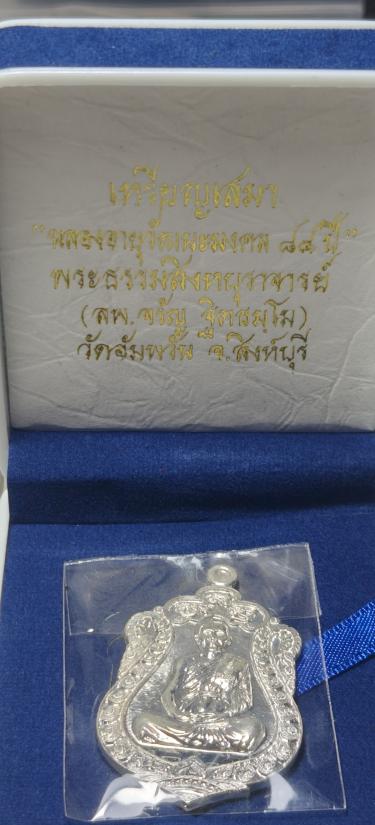 เหรียญเสมา
"ฉลองอายุวัฒนะมงคล ๘๔ ปี"
พระธรรมสิงหบุราจารย์
(ลพ.จรัญ ฐิตธมฺโม)
วัดอัมพวัน จ.สิงห์บุรี